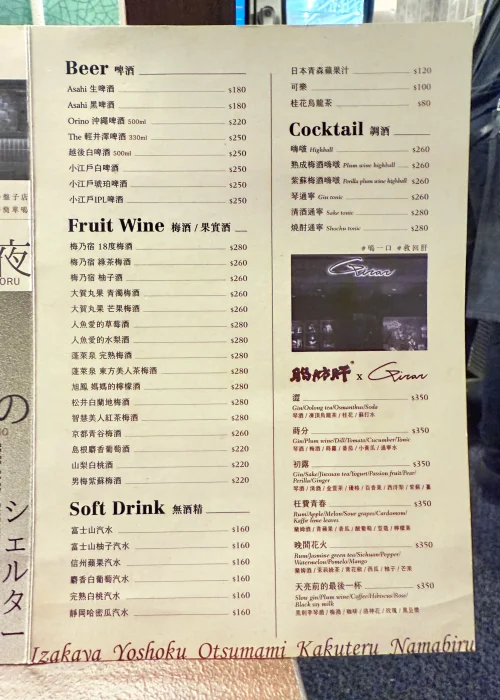 Beer 啤酒
Asahi 生啤酒 $180
Asahi 黑啤酒 $180
Orino 沖繩啤酒 500ml $220
The 輕井澤啤酒 330ml $250
越後白啤酒 500ml $250
小江戶白啤酒 $250
小江戶琥珀啤酒 $250
小江戶IPL啤酒 $250
Fruit Wine 梅酒 / 果實酒
梅乃宿 18度梅酒 $280
梅乃宿 綠茶梅酒 $260
梅乃宿 柚子酒 $260
大賀丸果 青濁梅酒 $260
大賀丸果 芒果梅酒 $260
人魚愛的草莓酒 $280
人魚愛的水梨酒 $280
蓬萊泉 完熟梅酒 $280
蓬萊泉 東方美人茶梅酒 $280
旭鳳 媽媽的檸檬酒 $280
松井白蘭地梅酒 $280
智慧美人紅茶梅酒 $280
京都青谷梅酒 $260
島根麝香葡萄酒 $220
山梨白桃酒 $220
男梅紫蘇梅酒 $220
Soft Drink 無酒精
富士山汽水 $160
富士山柚子汽水 $160
信州蘋果汽水 $160
麝香白葡萄汽水 $160
完熟白桃汽水 $160
靜岡哈密瓜汽水 $160
日本青森蘋果汁 $120
可樂 $100
桂花烏龍茶 $80
Cocktail 調酒
嗨啵 Highball $260
熟成梅酒嗨啵 Plum wine highball $260
紫蘇梅酒嗨啵 Perilla plum wine highball $260
琴通寧 Gin tonic $260
清酒通寧 Sake tonic $280
燒酎通寧 Shochu tonic $280
#喝一口 #救回肝
x
澀 $350
Gin/Oolong tea/Osmanthus/Soda
琴酒 / 凍頂烏龍茶 / 桂花 / 蘇打水
蒔分 $350
Gin/Plum wine/Dill/Tomato/Cucumber/Tonic
琴酒 / 梅酒 / 蒔蘿 / 番茄 / 小黃瓜 / 通寧水
初露 $350
Gin/Sake/Jinxuan tea/Yogurt/Passion fruit/Pear/
Perilla/Ginger
琴酒 / 清酒 / 金萱茶 / 優格 / 百香果 / 西洋梨 / 紫蘇 / 薑
枉費青春 $350
Rum/Apple/Melon/Sour grapes/Cardamom/
Kaffir lime leaves
蘭姆酒 / 青蘋果 / 香瓜 / 酸葡萄 / 荳蔻 / 檸檬葉
晚間花火 $350
Rum/Jasmine green tea/Sichuan/Pepper/
Watermelon/Pomelo/Mango
蘭姆酒 / 茉莉綠茶 / 青花椒 / 西瓜 / 柚子 / 芒果
天亮前的最後一杯 $350
Sloe gin/Plum wine/Coffee/Hibiscus/Rose/
Black soy milk
黑刺李琴酒 / 梅酒 / 咖啡 / 洛神花 / 玫瑰 / 黑豆漿
Izakaya Yoshoku Otsumami Kakuteru Namabiru
夜
ORU
の
シェルター